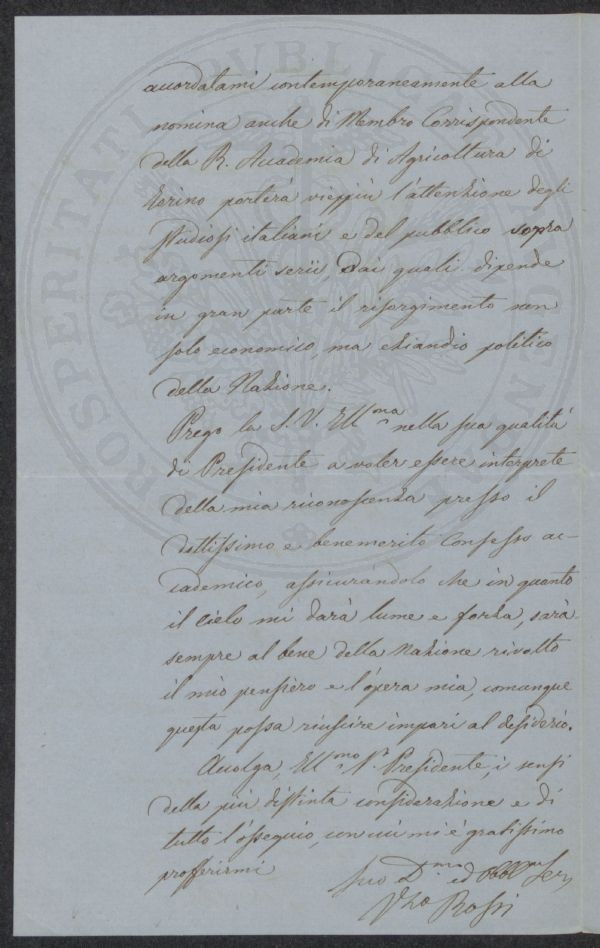 accordatami contemporaneamente alla
nomina anche di Membro Corrispondente
della R. Accademia di Agricoltura di
Torino porterà vieppiù l'attenzione degli
studiosi italiani e del pubblico sopra
argomenti serii, dai quali dipende
in gran parte il risorgimento non
solo economico, ma eziandio politico
della Nazione.
Prego la S. V. Ill.ma nella sua qualità
di Presidente a voler essere interprete
della mia riconoscenza presso il
dottissimo e benemerito Consesso ac-
cademico, assicurandolo che in quanto
il cielo mi darà lume e forza, sarà
sempre al bene della Nazione rivolto
il mio pensiero e l'opera mia, comunque
questa possa riuscire impari al desiderio.
Accolga, Ill.mo Sr. Presidente, i sensi
della più distinta considerazione e di
tutto l'ossequio, con cui mi è gratissimo
profferirmi
suo D.mo ed Obbl.mo Serv
Rossi
PROSPERITATI PUBLICAE